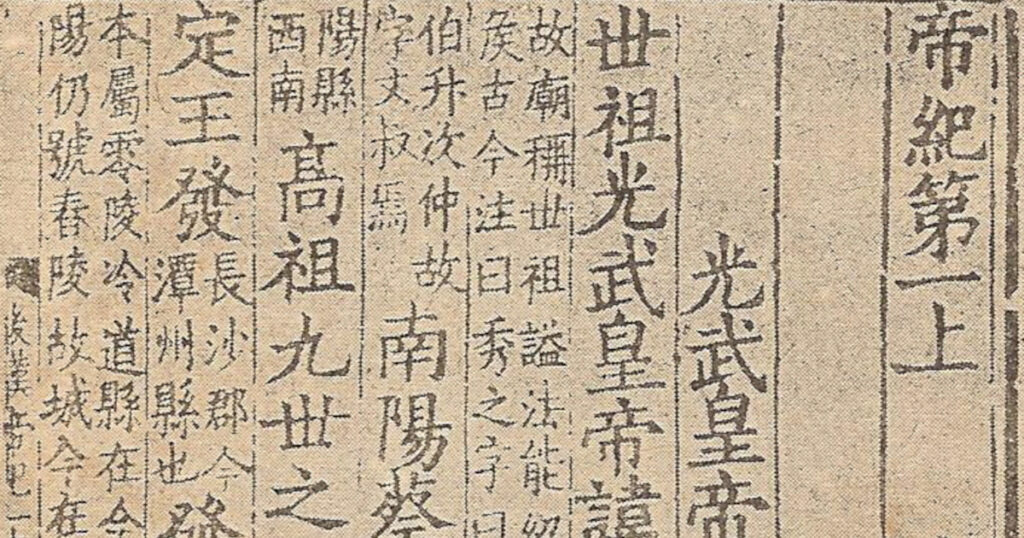 帝紀第一上
光武皇帝
丗祖光武皇帝諱
故廟稱丗祖謚法能紹
矦古今注曰秀之字曰
伯升次仲故
字文叔焉
南陽蔡
陽縣
西南
髙祖九丗之
定王發
長沙郡今
潭州縣也
發
本屬零陵冷道縣在今
陽仍號舂陵故城今在
後漢帝紀一